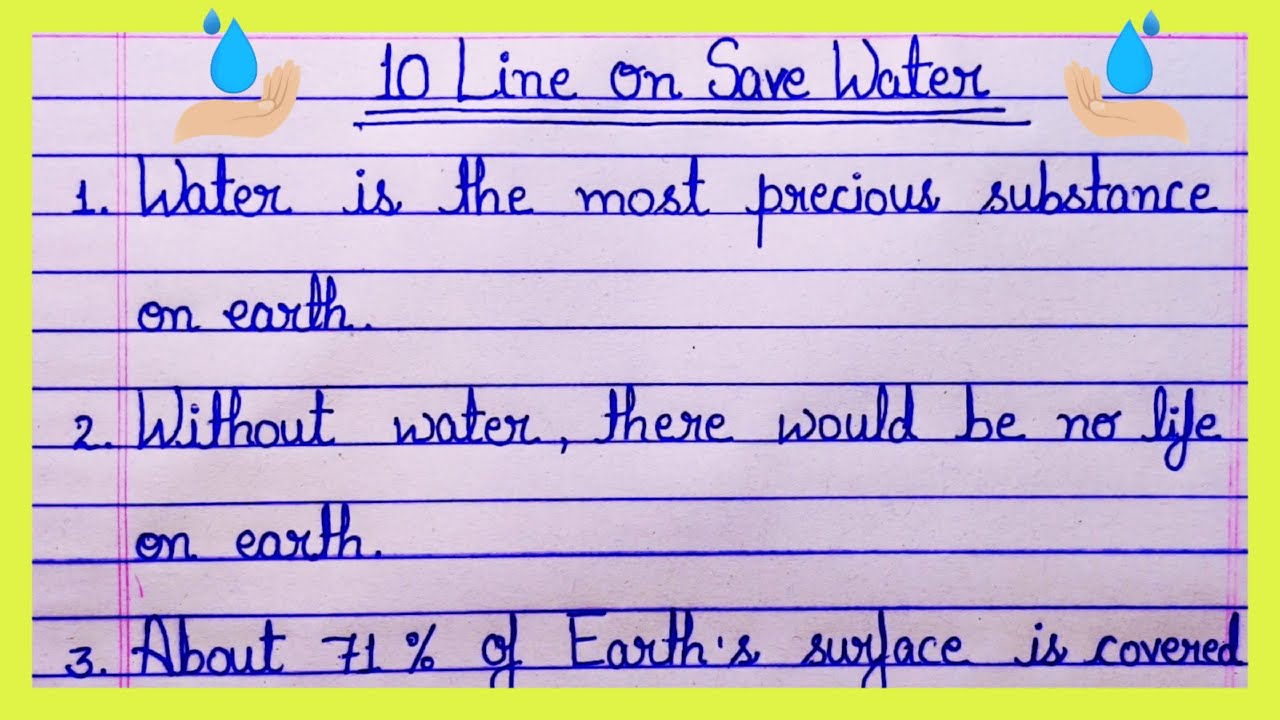 10 Line on Save Water
1. Water is the most precious substance
on earth.
2. Without water, there would be no life
on earth.
3. About 71% of Earth's surface is covered